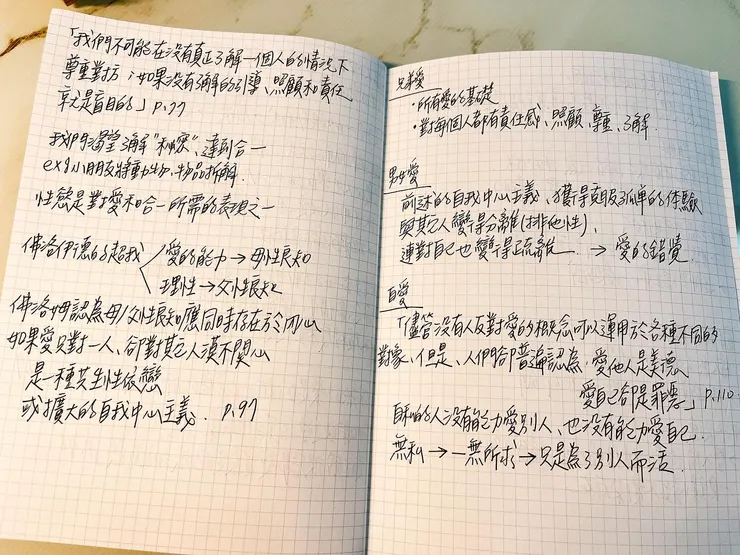 「我們不可能在沒有真正了解一個人的情況下
尊重對方；如果沒有了解的引導、照顧和責任
就是盲目的」p.77
我們渴望了解"秘密"、達到合一
ex:小朋友將動物、物品拆解.
性慾是對愛和合一所需的表現之一
佛洛伊德的超我
愛的能力→母性良知
理性→父性良知
佛洛姆認為母/父性良知應同時存在於內心
如果愛只對一人、卻對其它人漠不關心
是一種共生性依戀
或擴大的自我中心主義. p.97
兄弟愛
・所有愛的基礎
・對每個人都有責任感、照顧、尊重、了解.
男女愛
前述的自我中心主義、獲得克服孤單的体驗
與其它人變得分離(排他性)、
連對自己也變得疏離. → 愛的錯覺.
自愛
「儘管沒有人反對愛的概念可以運用於各種不同的
對象、但是、人們卻普遍認為 愛他人是美德
愛自己卻是罪惡」p.110
自私的人沒有能力愛別人、也沒有能力愛自己.
無私→一無所求→只是為了別人而活.